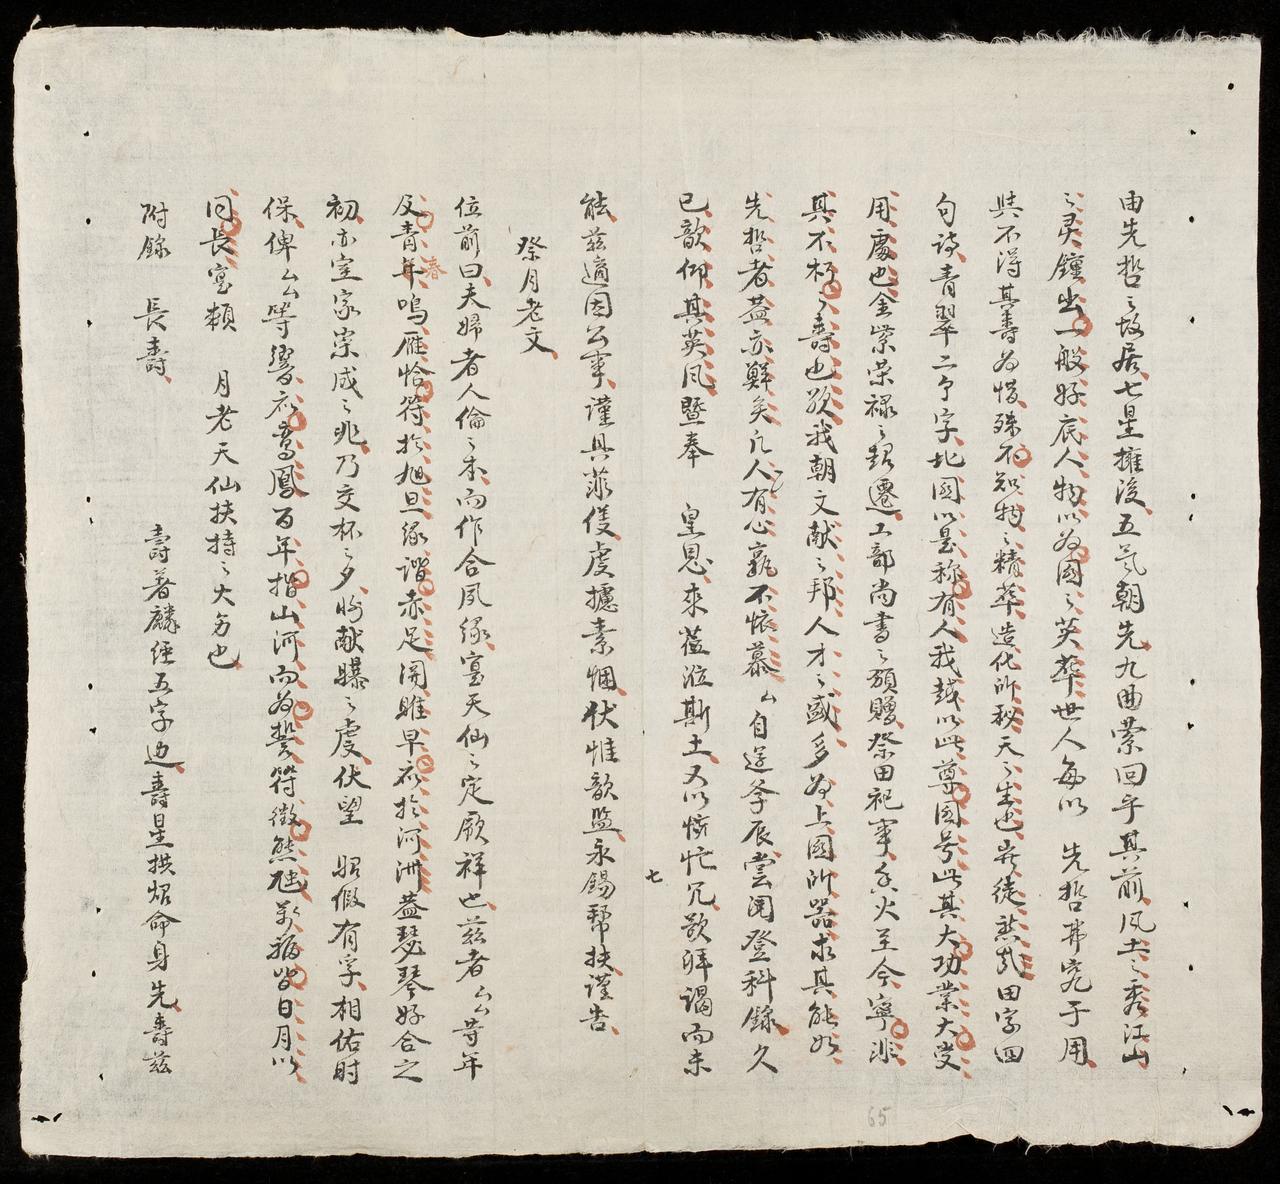 由先哲之故居七星擁後五氣朝先九曲縈回乎其前風土之秀江山
之灵鐘出一般好底人物以為國之英華世人每以 先哲弗究于用
與不得其壽為惜殊不知物之精華造化所秘天之生也豈徒然哉田字四
句詩青翠二个字北國以是称有人我越以此尊国号此其大功業大受
用處也金紫荣禄之超遷工部尚書之頒贈祭田祀事香火至今寧非
其不朽之壽也歟我朝文献之邦人才之盛多為上國所器求其能如
先哲者蓋亦鮮矣凡人有心孰不懷慕厶自逆峯辰嘗閱登科錄久
已歆仰其英风暨奉 皇恩来莅斯土又以忙冗欲拜謁而未
能茲適因公事謹具菲儀虔攄素悃伏惟歆監永錫帮扶謹告
祭月老文
位前曰夫婦者人倫之本而作合夙缘寔天仙之定厥祥也茲者厶等年
及青年鳴雁恰符於旭旦缘諧赤足関雎早叶於河洲蓋瑟琴好合之
春
初亦室家崇成之兆乃交杯之夕敢献曝之虔伏望 昭假有孚相佑時
保俾厶等響叶鸾鳳百年指山河而為誓符徵熊虺萬福皆日月以
同長寔賴 月老天仙扶持之大力也
附錄 長壽
壽著麟经五字迎壽星拱炤命身先壽茲
七
65